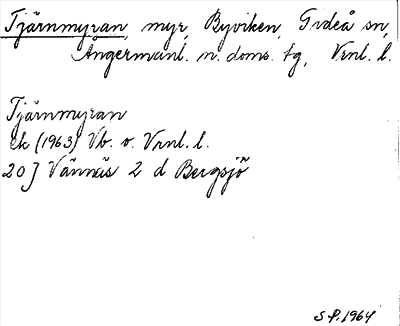 Tjärnmyran, myr, Byviken, Gideå sn,
Ångermanl. n. doms. tg, Vrnl. l.
Tjärnmyran
ek (1963) Vb. o. Vrnl. l.
20J Vännäs 2 d Bergsjö
S.P. 1964